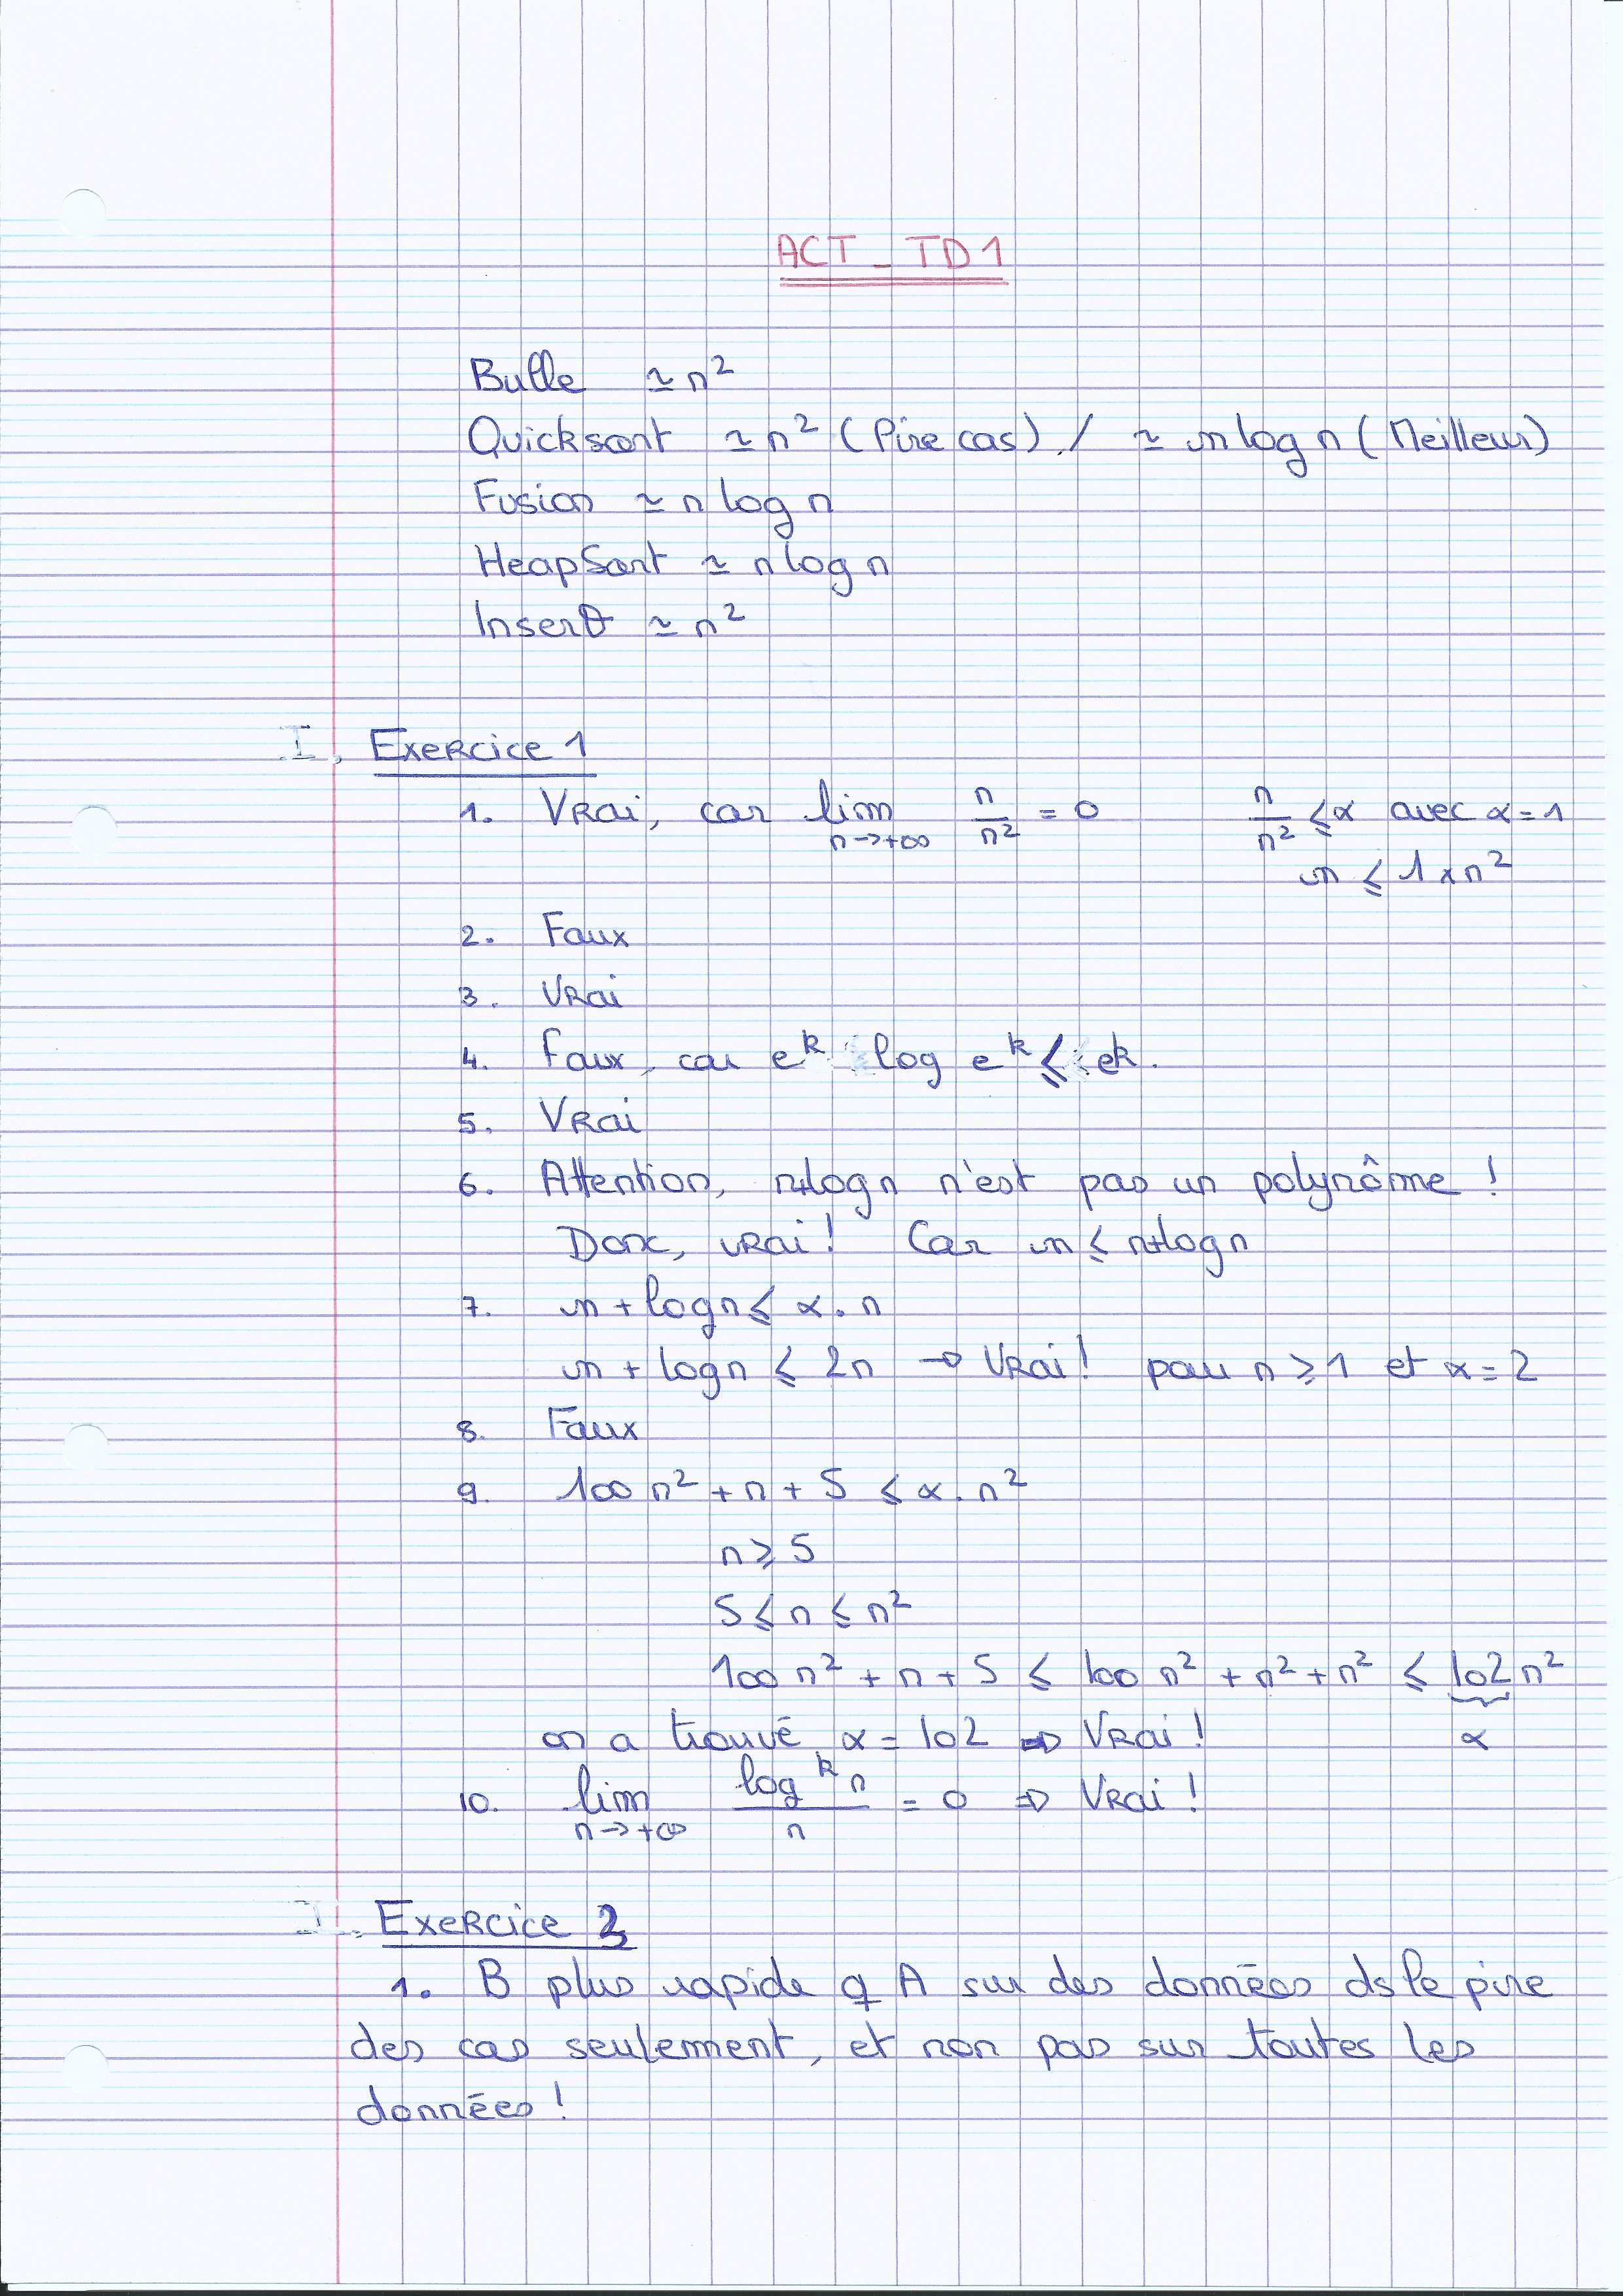 ACT_TD1
Bulle ≃ n²
Quicksort ≃ n² (Pire cas) / ≃ n log n (Meilleur)
Fusion ≃ n log n
HeapSort ≃ n log n
Insert° ≃ n²
I. Exercice 1
1. Vrai, car lim n→+∞ n/n² = 0 n/n² ⩽ α avec α = 1
n ⩽ 1 × n²
2. Faux
3. Vrai
4. Faux, car eᵏ log eᵏ ⩽ ek.
5. Vrai
6. Attention, n+log n n'est pas un polynôme !
Donc, vrai ! Car n ⩽ n+log n
7. n + log n ⩽ α . n
n + log n ⩽ 2n → Vrai ! pour n ⩾ 1 et α = 2
8. Faux
9. 100 n² + n + 5 ⩽ α . n²
n ⩾ 5
5 ⩽ n ⩽ n²
100 n² + n + 5 ⩽ 100 n² + n² + n² ⩽ 102 n²
on a trouvé α = 102 ⇒ Vrai ! α
10. lim n→+∞ logᵏ n / n = 0 ⇒ Vrai !
I. Exercice 2
1. B plus rapide q A sur des données ds le pire
des cas seulement, et non pas sur toutes les
données !